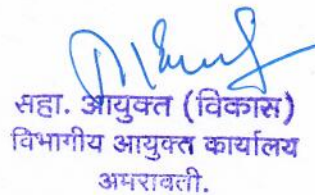 सहा. आयुक्त (विकास)
विभागीय आयुक्त कार्यालय
अमरावती.